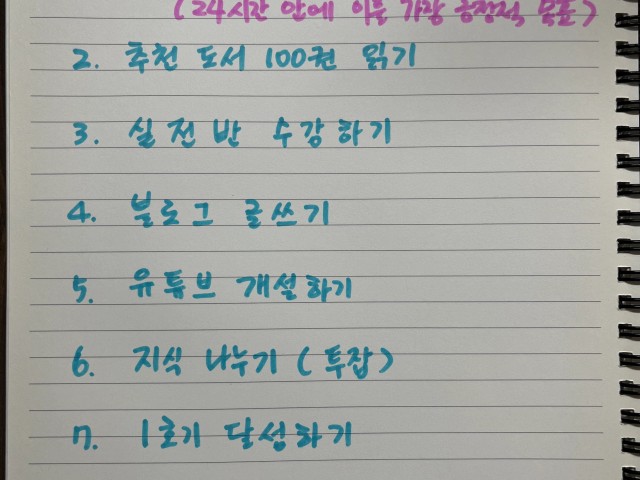 (24시간 안에 이룰 가장 긍정적 목표)
2. 추천 도서 100권 읽기
3. 실전반 수강하기
4. 블로그 글쓰기
5. 유튜브 개설하기
6. 지식 나누기 (투잡)
7. 1호기 달성하기